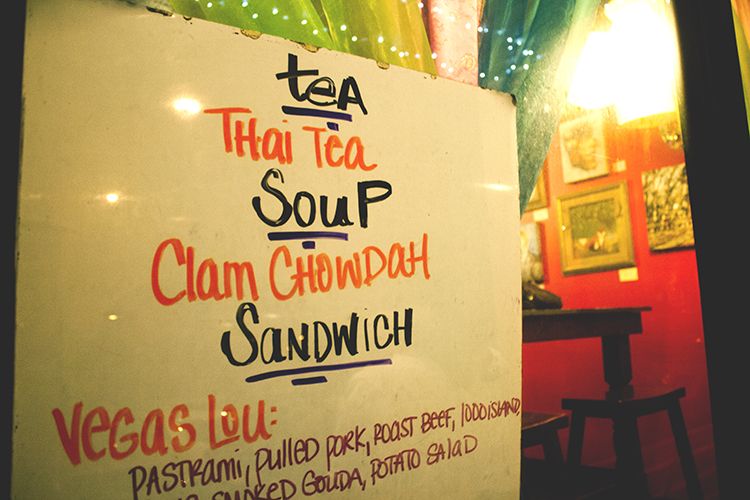 teA
THai Tea
SouP
Clam CHOWDAH
SANDWICH
VEGAS LOU:
PASTRAMi, PULLED PORK, ROAST BEEF, 1000 iSLAND,
SMOKED GOUDA, POTATO SALAD